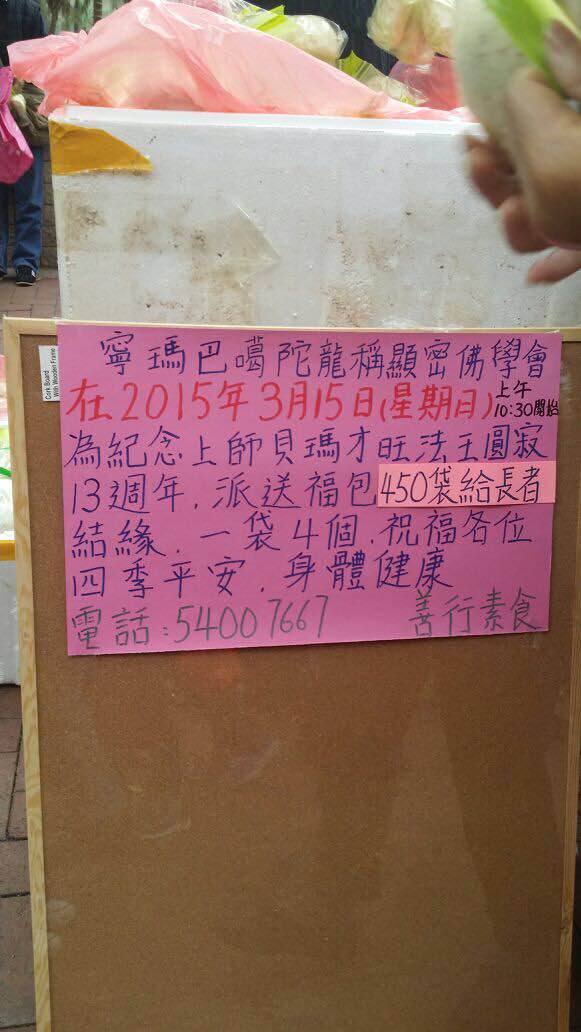 Cork Board
With Wooden Frame
寧瑪巴噶陀龍稱顯密佛學會
在2015年3月15日(星期日)上午10:30開始
為紀念上師貝瑪才旺法王圓寂
13週年.派送福包450袋給長者
結緣.一袋4個.祝福各位
四季平安.身體健康
電話:54007667 善行素食